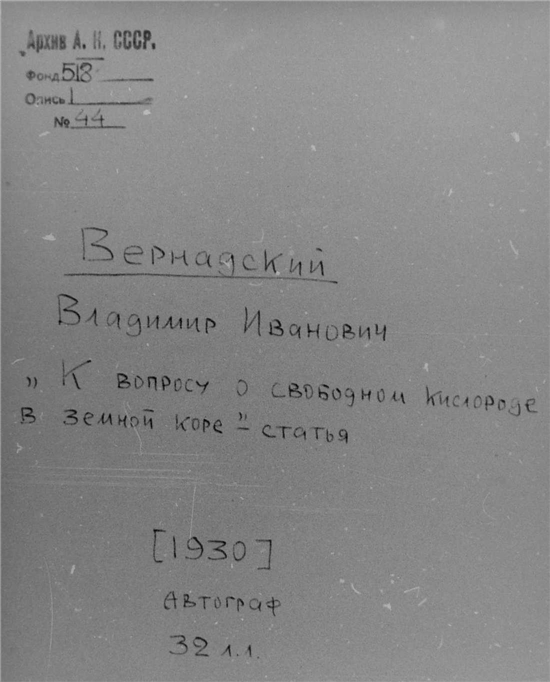 Архив А. Н. СССР.
Фонд 518
Опись 1
№ 44
Вернадский
Владимир Иванович
„К вопросу о свободном кислороде
в земной коре” – статья
[1930]
Автограф
32 л.л.